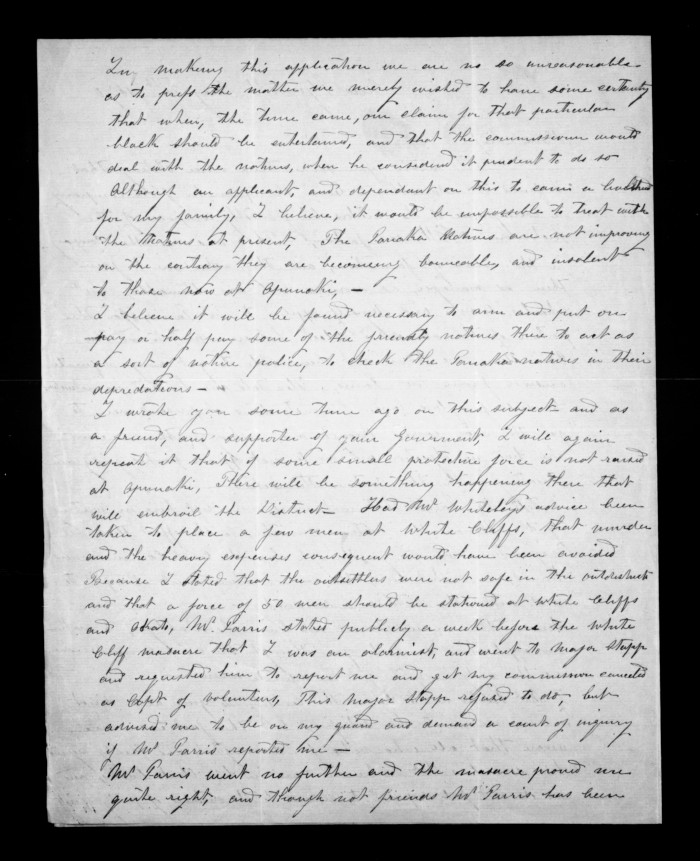 In making this application we are no so unreasonable
as to press the matter we merely wished to have some certainty
that when, the time came, our claim for that particular
block should be entertained, and that the commissioner would
deal with the natives, when he considered it prudent to do so
Although an applicant, and dependant on this to earn a livelihood
for my family, I believe, it would be impossible to treat with
the Natives at present, The Panaka Natives are not improving
on the contrary they are becomeing and insolent
to those now at Opunaki, —
I believe it will be found necessary to arm and put on
pay or half pay some of the friendly natives there to act as
a sort of native police, to check the Panaka natives in their
depredations —
I wrote you some time ago on this subject and as
a friend, and supporter of your Goverment, I will again
repeat it that if some small protective force is not raised
at Opunaki, There will be something happening there that
will embroil the District — Had Mr Whiteley's advice been
taken to place a few men, at White Cliffs, that murder
and the heavy expenses consequent would have been avoided
Because I stated that the outsettlers were not safe in the outdistricts
and that a force of 50 men should be stationed at White Cliffs
and Okato, Mr Parris stated publicly a week before the White
Cliff masacre that I was an alarmist, and went to Major Stapp
and requested him to report me and get my commission canceled
as Capt of Volunteers, This Major Stapp refused to do, but
advised me to be on my guard and demand a court of inquiry
if Mr Parris reported me —
Mr Parris went no further and the masacre proved me
quite right, and though not friends Mr Parris has been